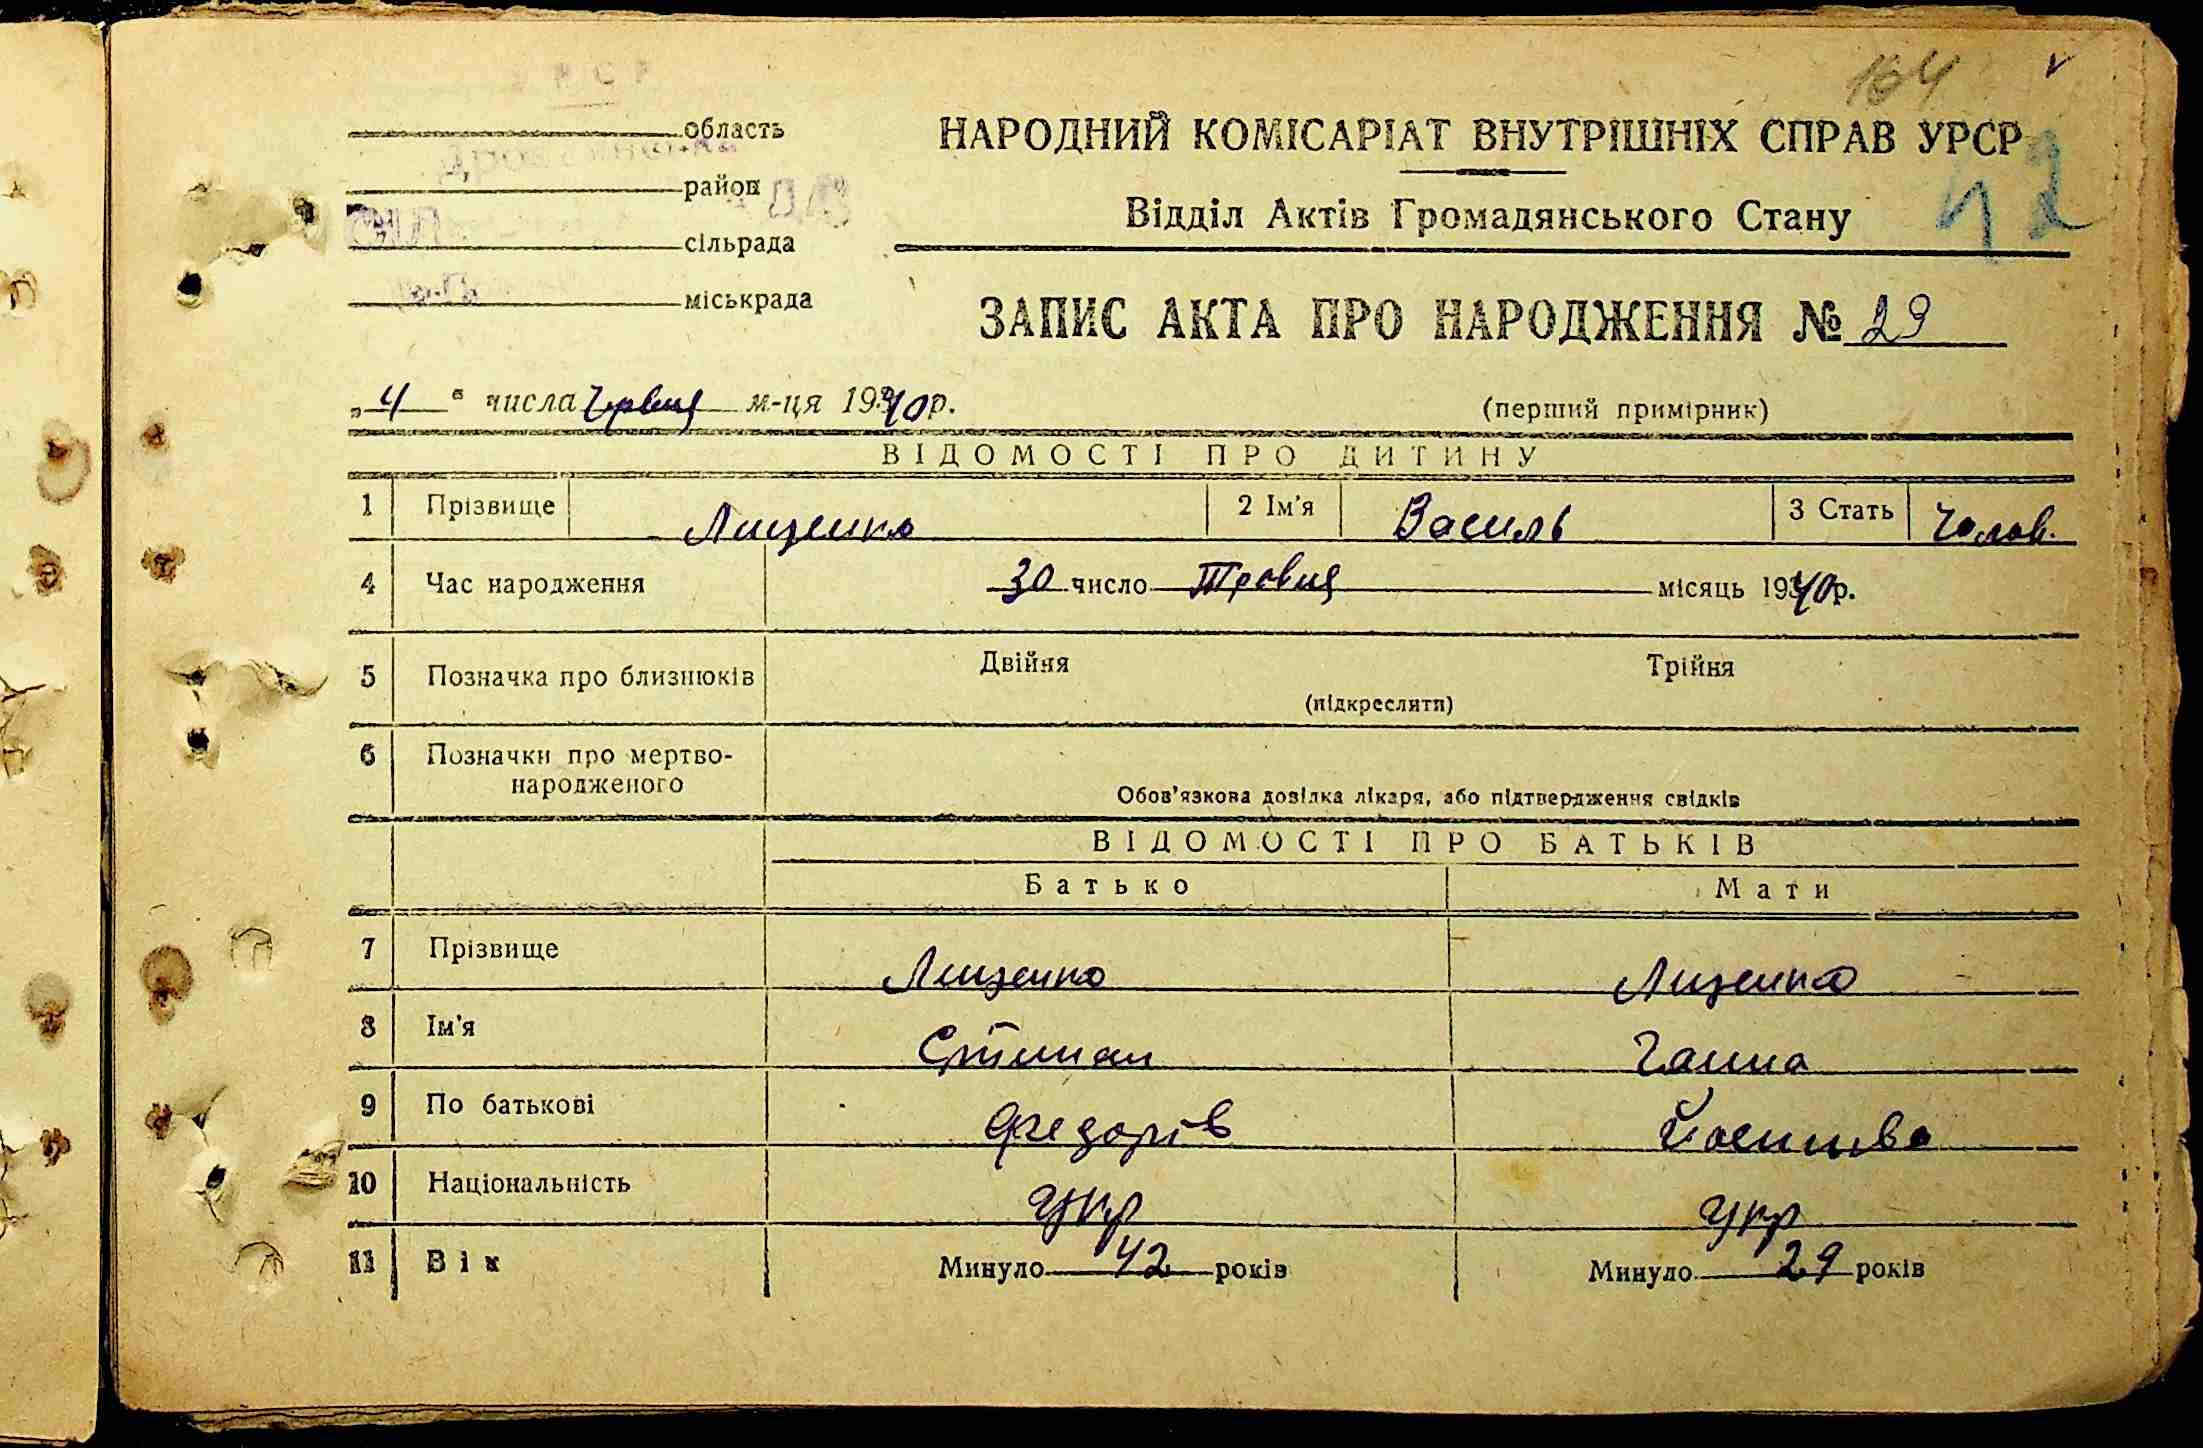 164
область
район
сільрада
міськрада
НАРОДНИЙ КОМІСАРІАТ ВНУТРІШНІХ СПРАВ УРСР
42
Відділ Актів Громадянського Стану
ЗАПИС АКТА ПРО НАРОДЖЕННЯ № 29
„4“ числа Червця м-ця 1940 р.
(перший примірник)
ВІДОМОСТІ ПРО ДИТИНУ
1 Прізвище Лищенко 2 Ім'я Василь 3 Стать Чолов.
4 Час народження 30 число Травця місяць 1940 р.
5 Позначка про близнюків Двійня Трійня
(підкреслити)
6 Позначки про мертво-
народженого
Обов'язкова довідка лікаря, або підтвердження свідків
ВІДОМОСТІ ПРО БАТЬКІВ
Батько Мати
7 Прізвище Лищенко Лищенко
8 Ім'я Степан Ганна
9 По батькові Федорів Йосипова
10 Національність Укр Укр
11 Вік Минуло 42 років Минуло 29 років